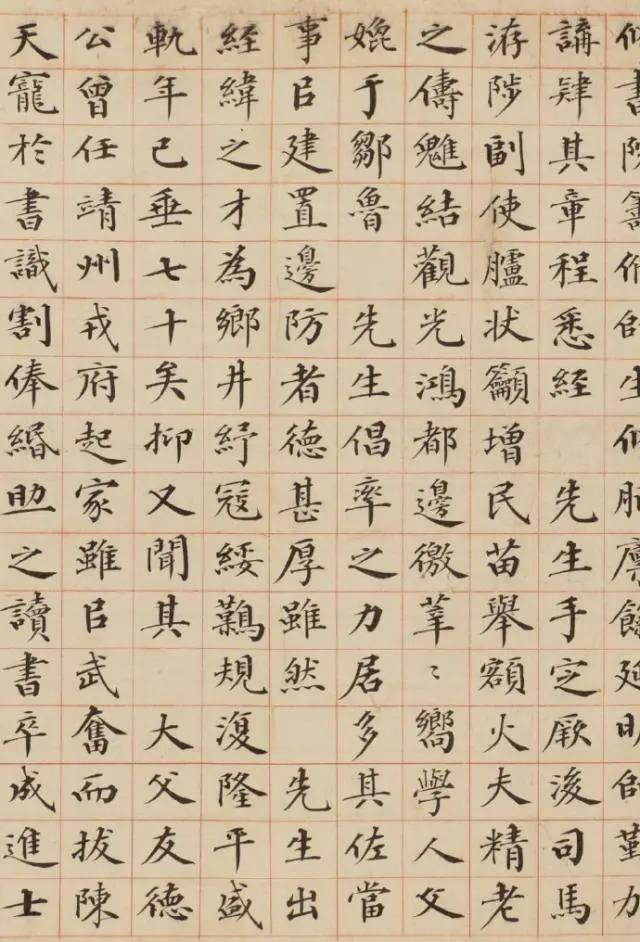 書院師生廩餼延明師勤力
講肄其章程悉經 先生手定厥後司馬
游陟副使臚狀籲增民苗舉額火夫精老
之儔魋結觀光鴻都邊徼莘〻嚮學人父
媲于鄒魯 先生倡率之力居多其佐當
事㠯建置邊防者德甚厚雖然 先生出
經緯之才為鄉井紓寇綏難規復隆平盛
軌年已垂七十矣抑又聞其 大父友德
公曾任靖州戎府起家雖㠯武奮而拔陳
天寵於書識割俸緡助之讀書卒成進士